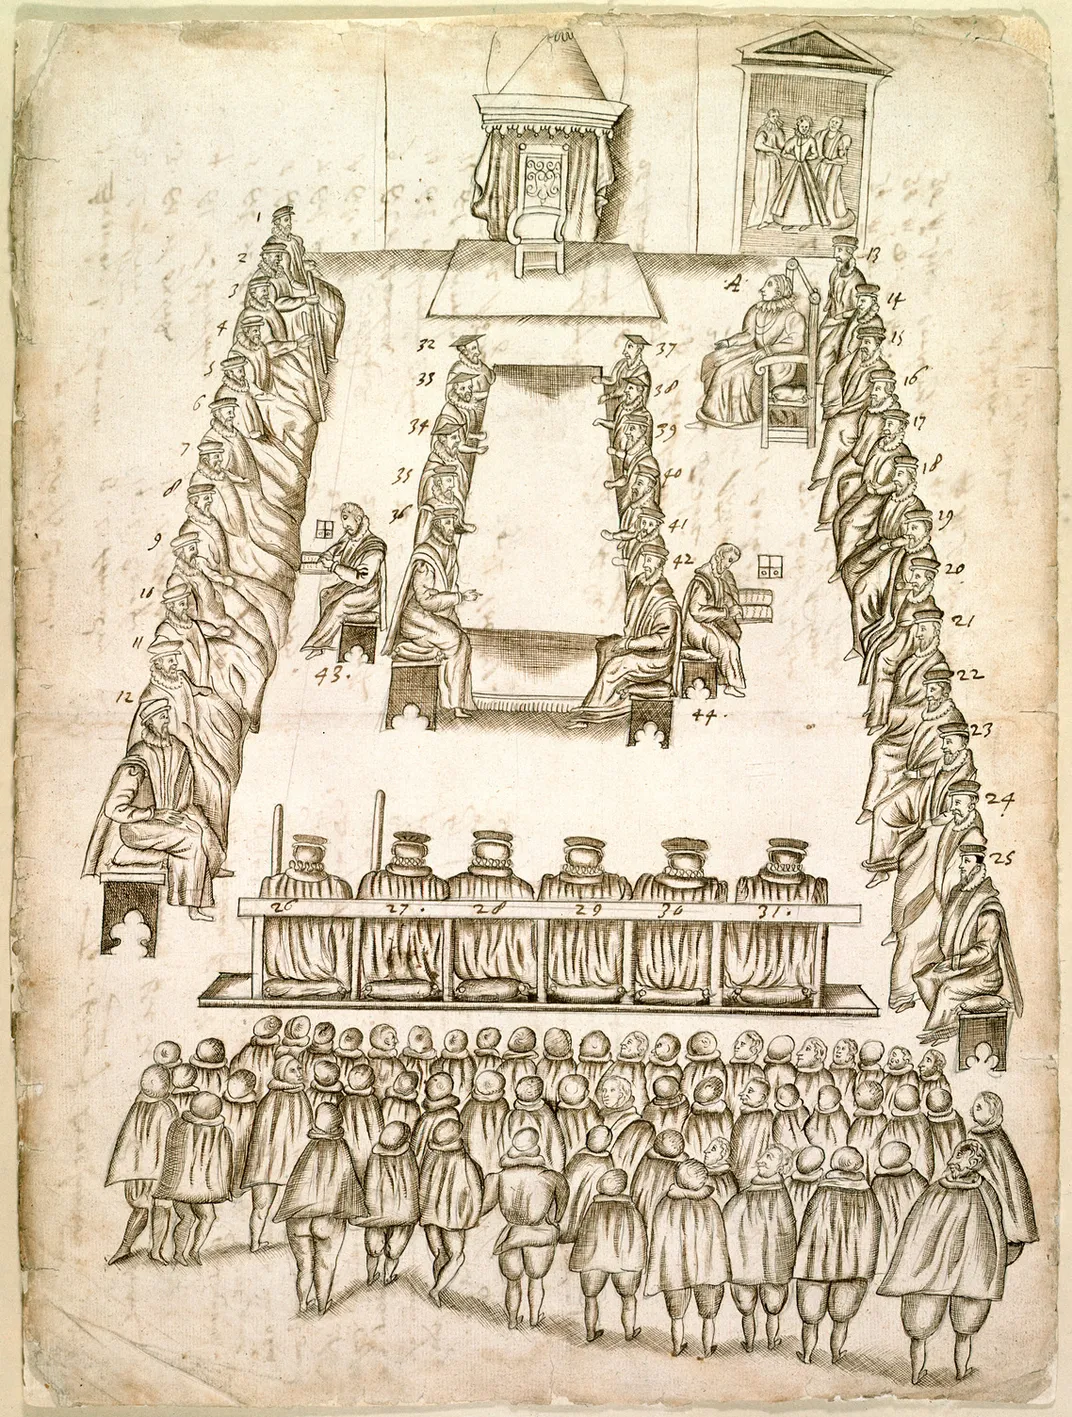 1
2
3
4
5
6
7
8
9
10
11
12
13
14
15
16
17
18
19
20
21
22
23
24
25
A
32
33
34
35
36
37
38
39
40
41
42
43.
44.
26
27.
28
29
30
31.